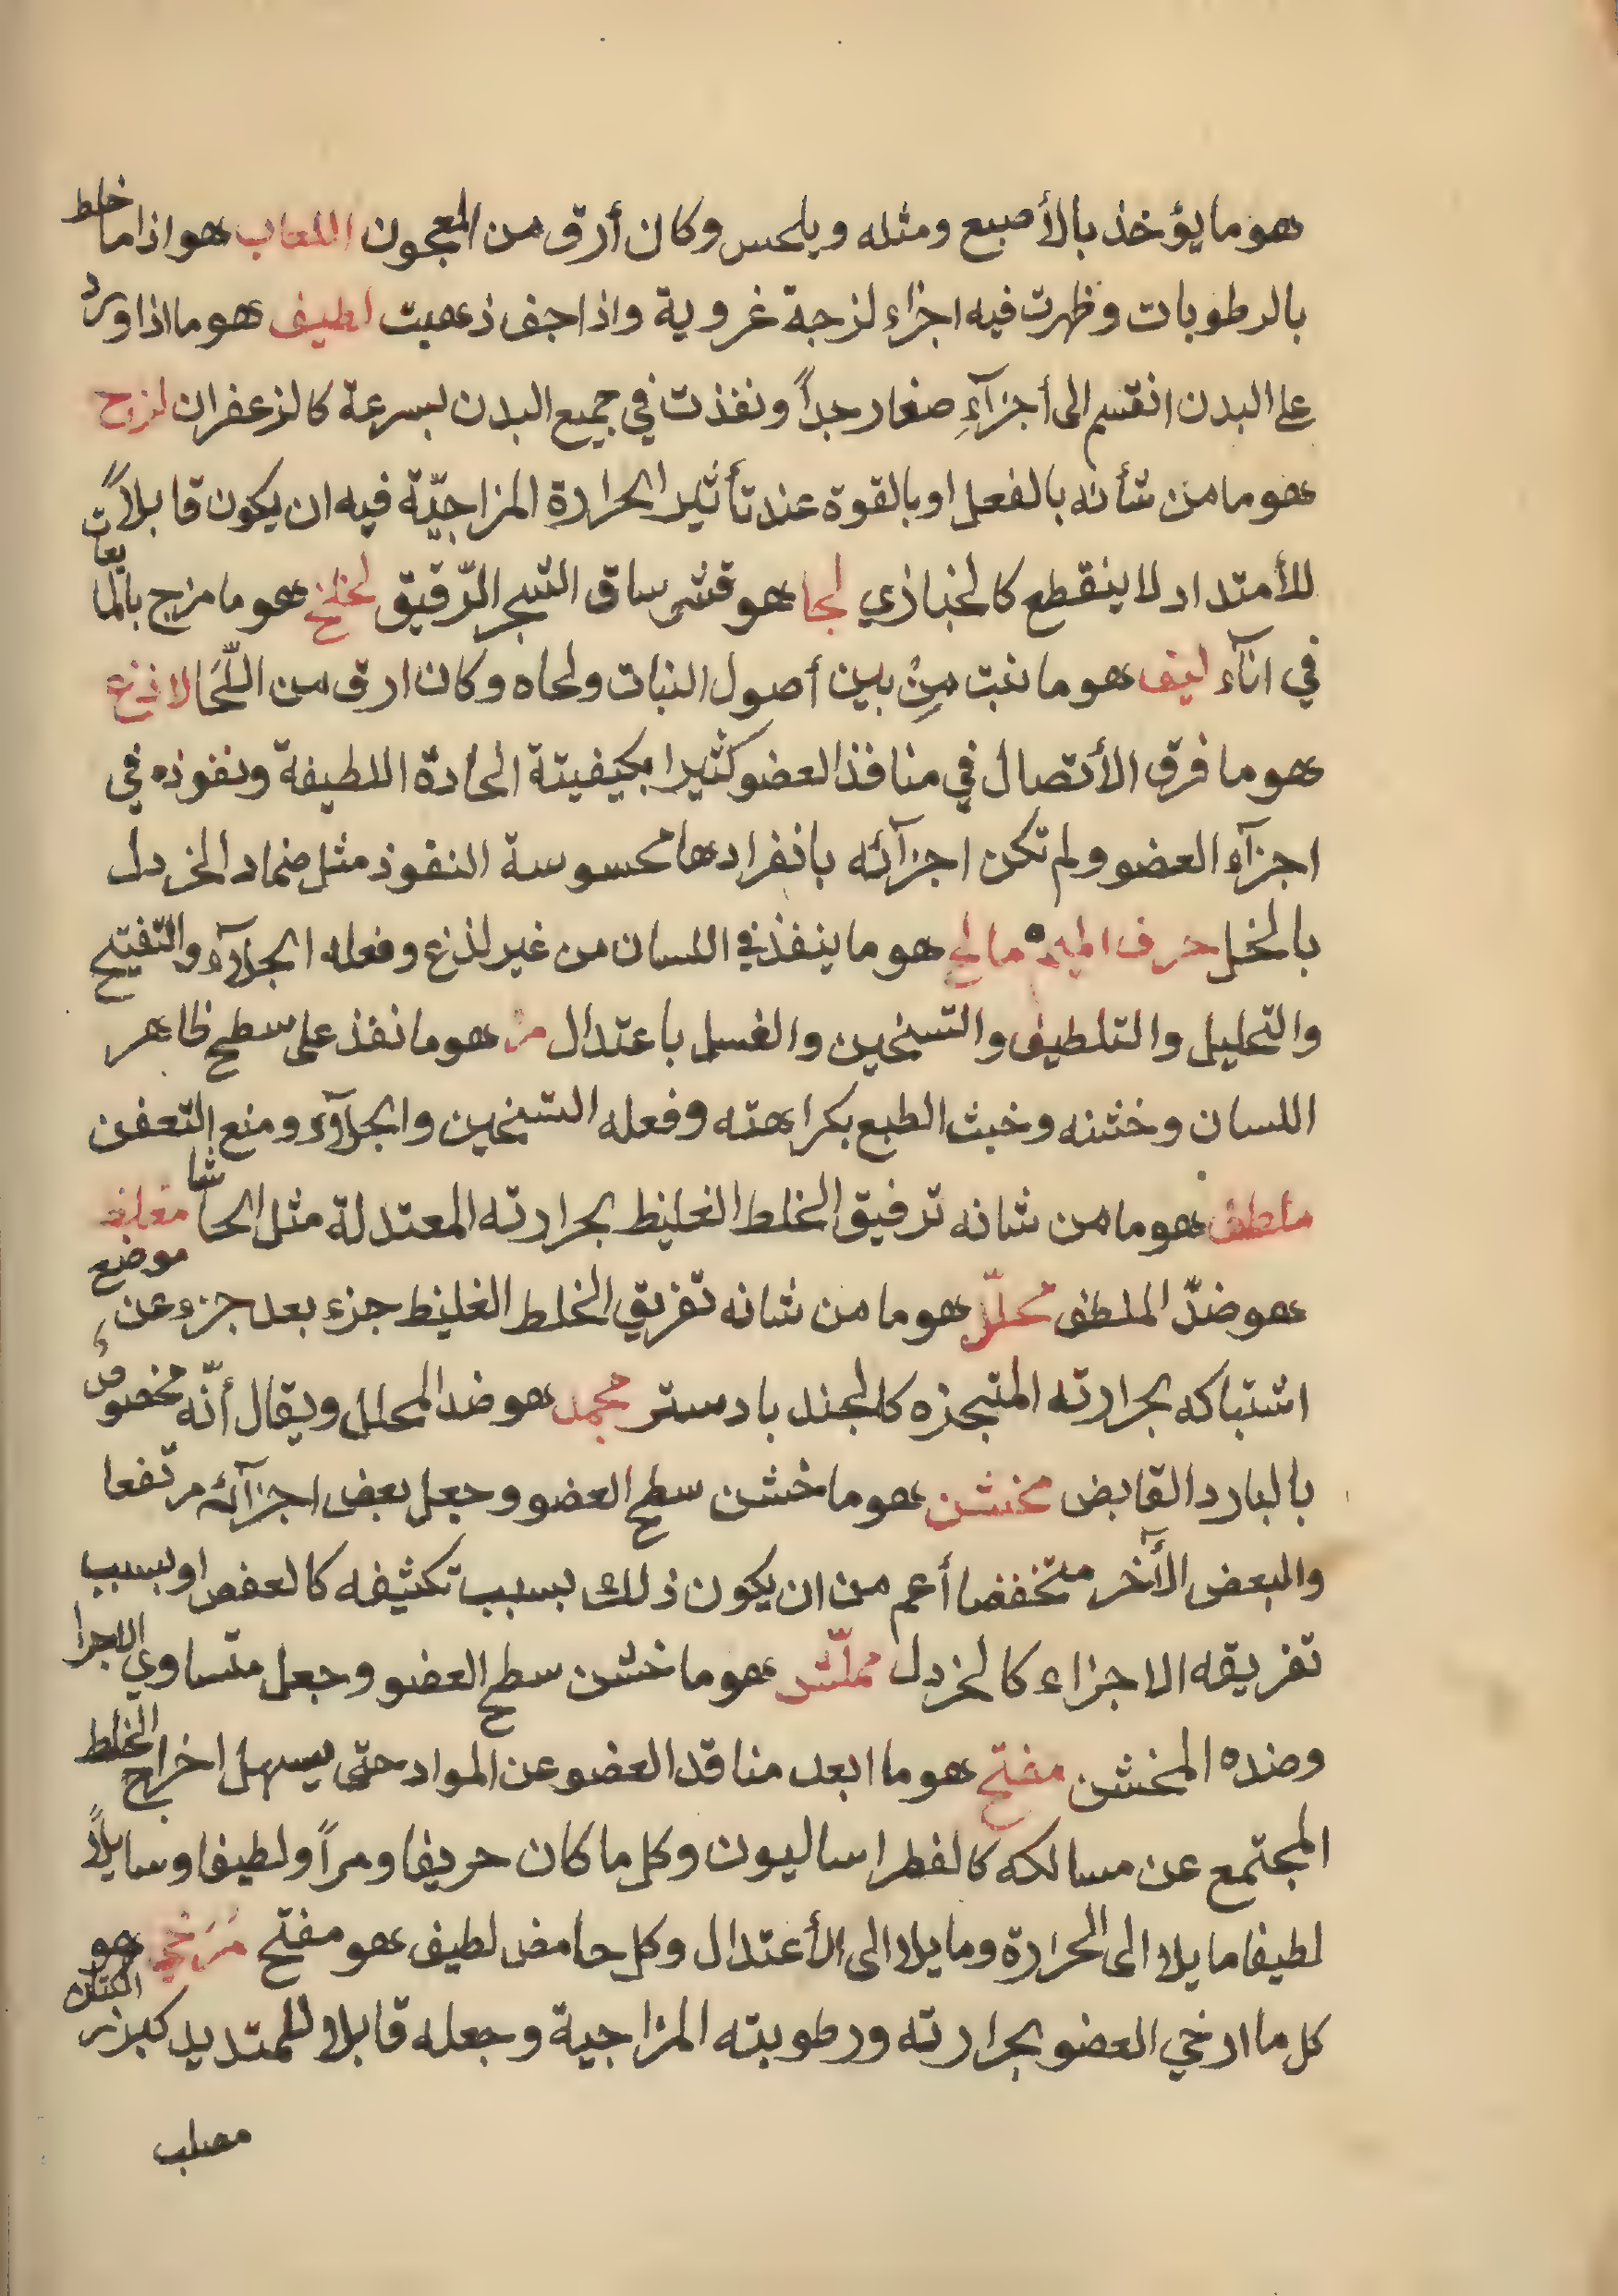 هو ما يؤخذ بالأصبع ومثله ويلحس وكان أرق من المعجون اللعاب هو اذا ما خلط
بالرطوبات وظهرت فيه اجزاء لزجة غروية واذا جف ذهبت لطيف هو ما اذا ورد
على البدن انقسم الى أجزآءِ صغار جداً ونفذت في جميع البدن بسرعة كالزعفران لزج
هو ما من شأنه بالفعل او بالقوة عند تأثير الحرارة المزاجيّة فيه ان يكون قابلاً
للأمتداد لا ينقطع كالخبازي لحا هو قشر ساق الشجر الرّقيق لخلخ هو ما مزج بالمايعات
في انآء ليف هو ما نبت مِنْ بين أصول النبات ولحاه وكان ارق من اللّحَا لاذع
هو ما فرق الأتصال في منافذ العضو كثيرا بكيفيتة الحادّة اللطيفة ونفوذه في
اجزآء العضو ولم تكن اجزآئه بانفرادها محسوسة النفوذ مثل ضماد الخردل
بالخل حرف الميم مالح هو ما ينفذ في اللسان من غير لذع وفعله الجلآء والتّفتيح
والتحليل والتلطيف والتسخين والغسل باعتدال مر هو ما نفذ على سطح ظاهر
اللسان وخشنه وخبث الطبع بكراهته وفعله التسخين والجلآء ومنع التّعفن
ملطف هو ما من شانه ترقيق الخلط الغليظ بحرارته المعتدلة مثل الحاشا مغلظ
هو ضدّ الملطف محلّل هو ما من شانه تفريق الخلط الغليظ جزء بعد جزء عن موضع
اشتباكه بحرارته المتبجزه كالجندبادستر مجمد هو ضد المحلل ويقال أنّه مخصوصٌ
بالبارد القابض مخشن هو ما خشن سطح العضو وجعل بعض اجزآئه مرتفعا
والبعض الأخر منخفضا أعم من ان يكون ذلك بسبب تكثيفه كالعفص او بسبب
تفريقه الاجزاء كالخردل مملّس هو ما خشن سطح العضو وجعل متساوي الاجرا
وضده المخشن مفتح هو ما ابعد مناقد العضو عن المواد حتى يسهل اخراج الخلط
المجتمع عن مسالكه كالفطراساليون وكل ما كان حريفا ومراً ولطيفا وسايلاً
لطيفا مايلا الى الحرارة ومايلا الى الأعتدال وكل حامض لطيف هو مفتح مَرَخي هو
كل ما ارخي العضو بحرارته ورطوبته المزاجية وجعله قابلا للمتديد كبزر الكتان
مصلب